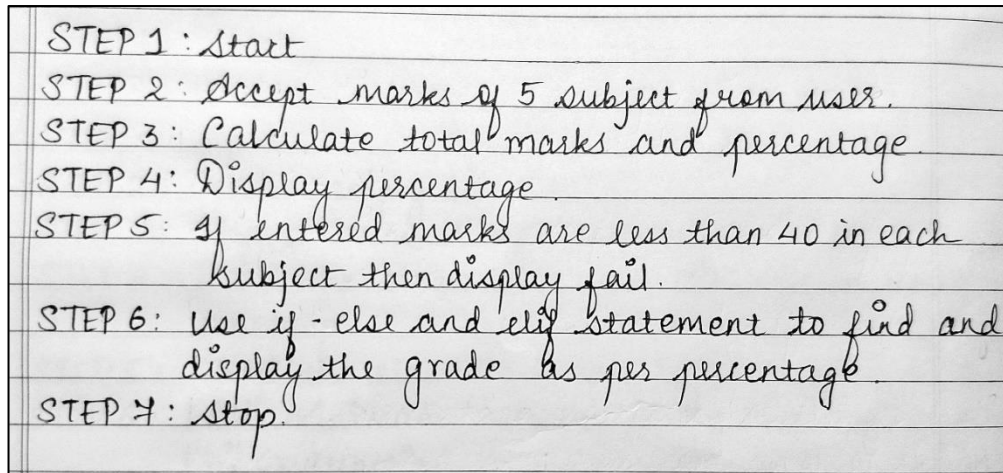 STEP 1: Start
STEP 2: Accept marks of 5 subject from user.
STEP 3: Calculate total marks and percentage
STEP 4: Display percentage.
STEP 5: If entered marks are less than 40 in each
subject then display fail.
STEP 6: Use if-else and elif statement to find and
display the grade as per percentage.
STEP 7: Stop.